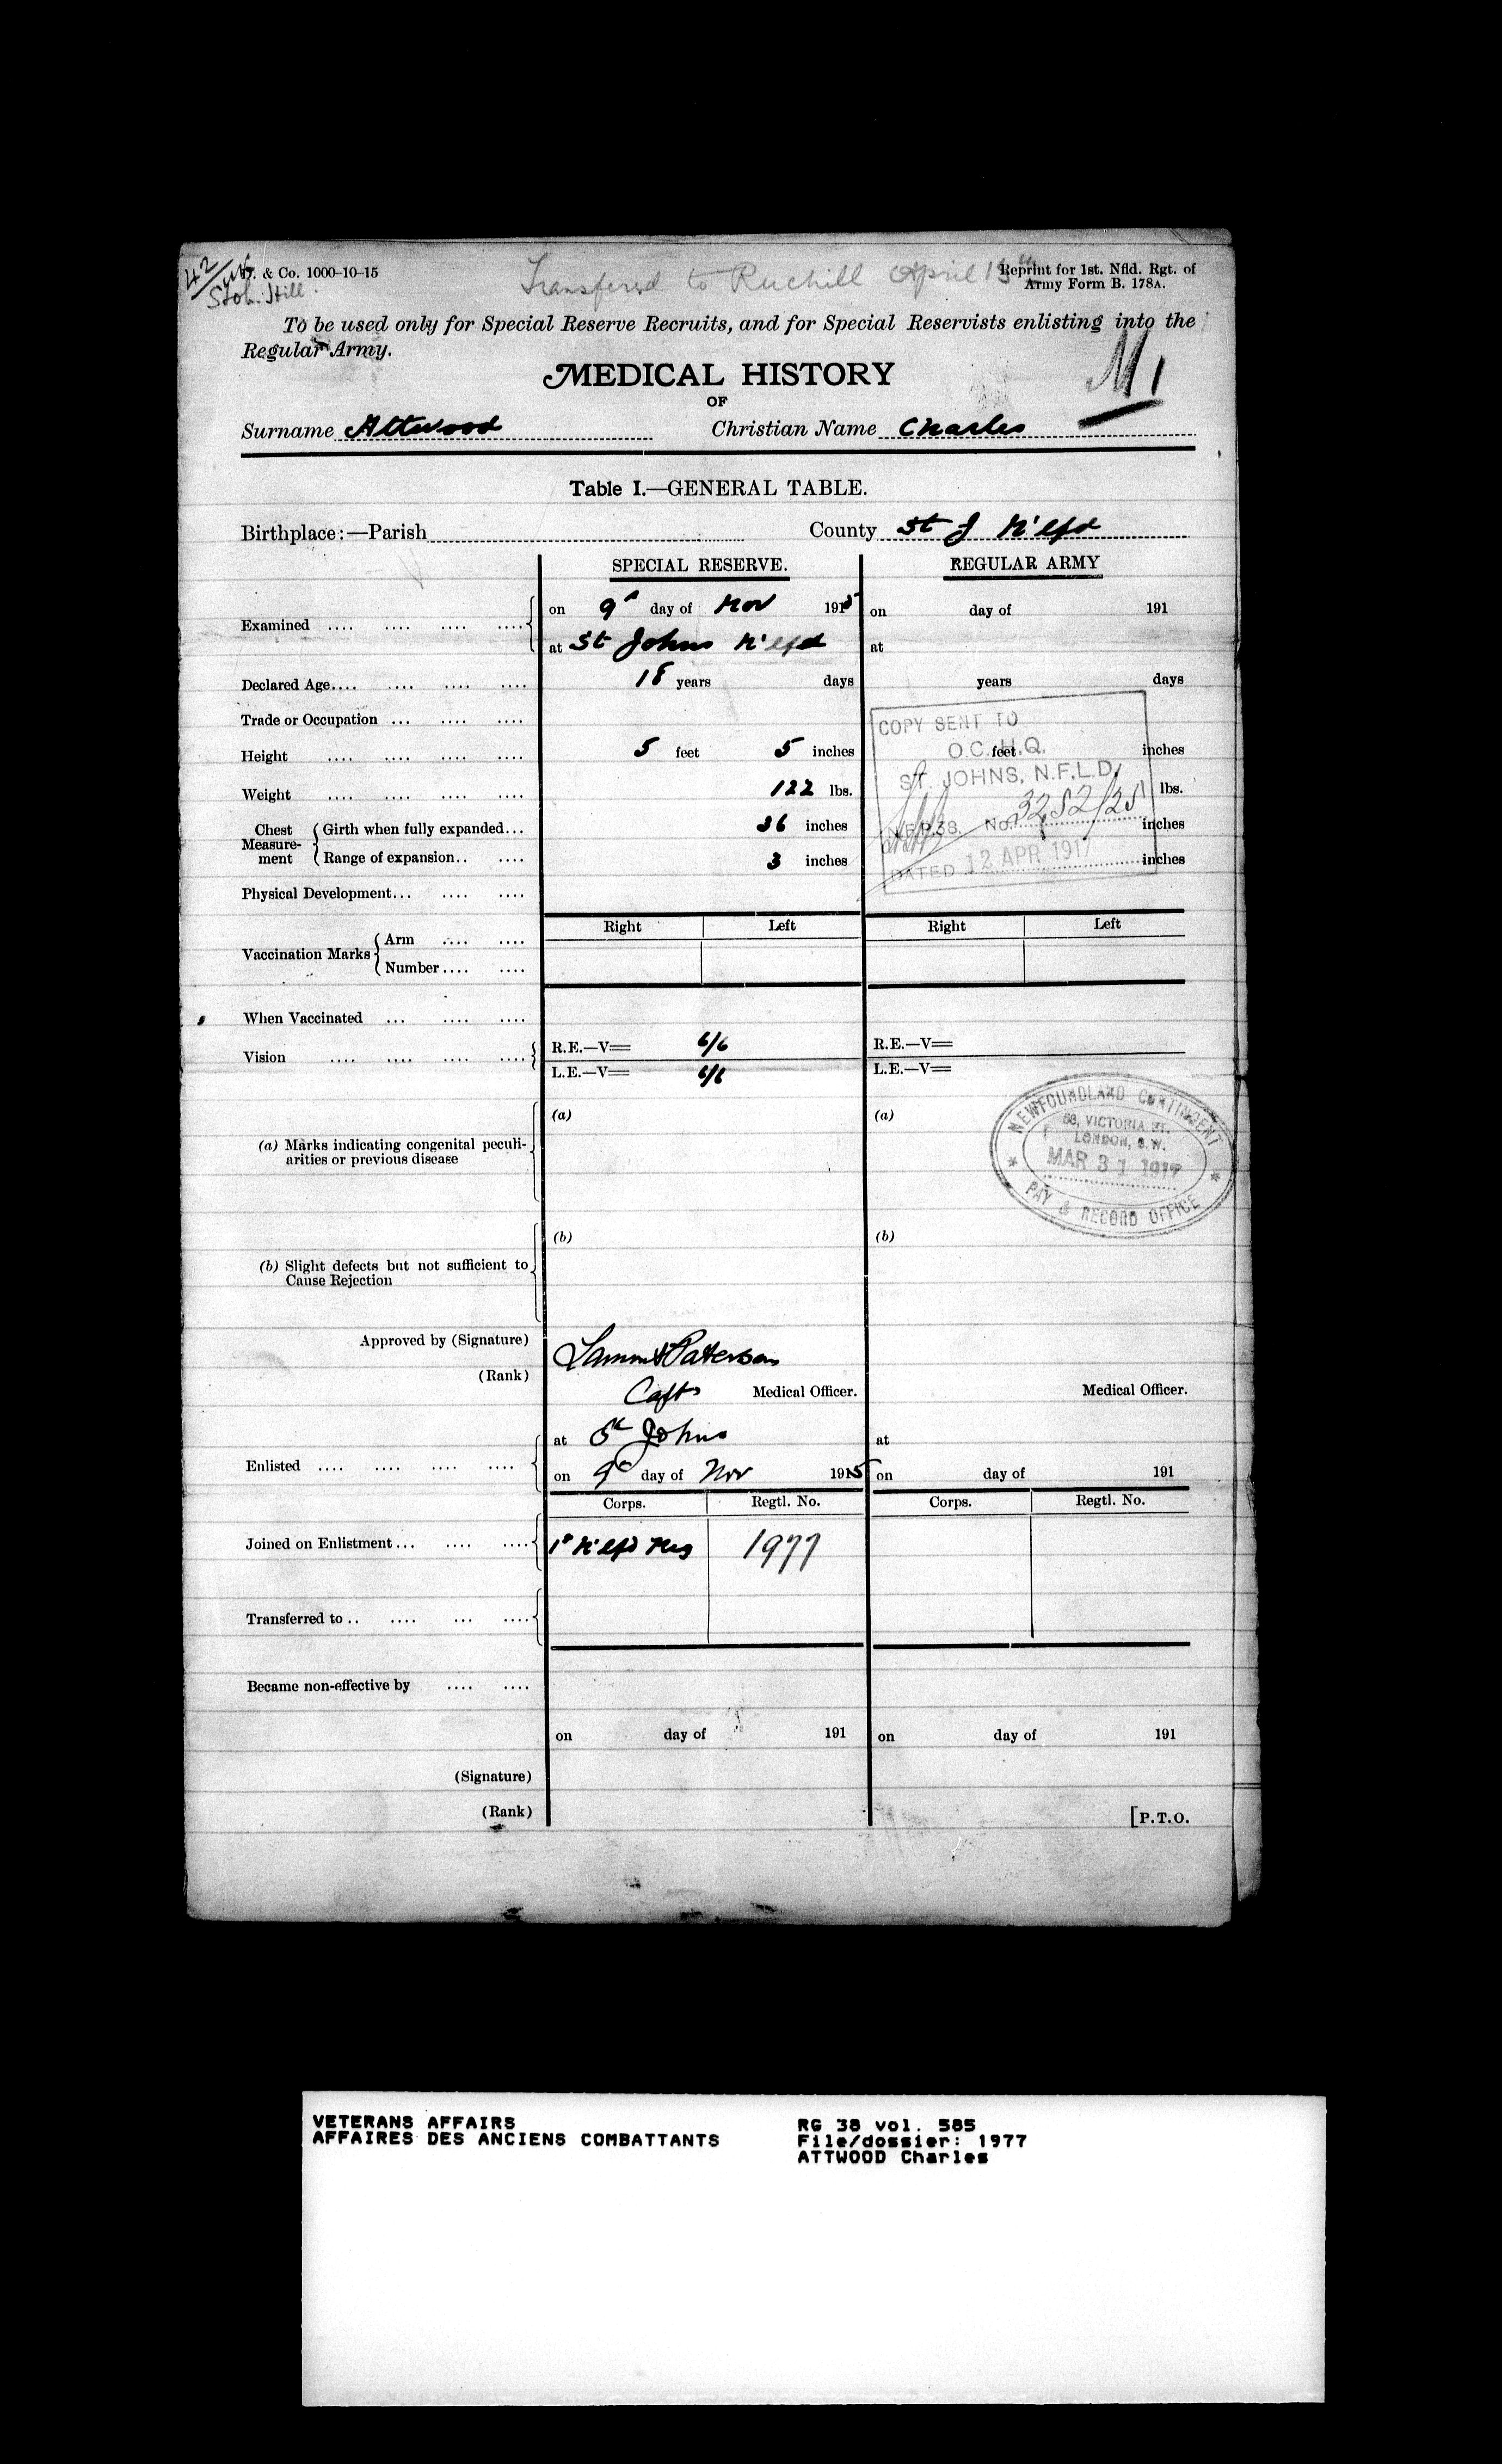 42
Stob. Hill
& Co. 1000-10-15
Transferred to Ruchill April 13th
Reprint for 1st. Nfld. Rgt. of
Army Form B. 178A.
To be used only for Special Reserve Recruits, and for Special Reservists enlisting into the
Regular Army.
M1
MEDICAL HISTORY
OF
Surname Attwood Christian Name Charles
Table I.—GENERAL TABLE.
Birthplace:—Parish County St J N'lfd
SPECIAL RESERVE. REGULAR ARMY
Examined .... .... .... .... on 9th day of Nov 1915 on day of 191
at St Johns N'lfd at
Declared Age.... .... .... .... 18 years days years days
Trade or Occupation ... .... ....
Height .... .... .... .... 5 feet 5 inches feet inches
Weight .... .... .... .... 122 lbs. lbs.
Chest Measurement Girth when fully expanded... 36 inches inches
Range of expansion.. .... 3 inches inches
COPY SENT TO
O.C. H.Q.
ST. JOHNS, N.F.L.D.
N.F.P.38. No. 3252/25
DATED 12 APR 1917
Physical Development... .... ....
Right Left Right Left
Vaccination Marks Arm .... ....
Number .... ....
When Vaccinated ... .... ....
Vision .... .... .... .... R.E.—V= 6/6 R.E.—V=
L.E.—V= 6/6 L.E.—V=
NEWFOUNDLAND CONTINGENT
58, VICTORIA ST.
LONDON, S.W.
MAR 31 1917
PAY & RECORD OFFICE
(a) Marks indicating congenital peculi-
arities or previous disease
(a) (a)
(b) Slight defects but not sufficient to
Cause Rejection
(b) (b)
Approved by (Signature) Paterson
(Rank) Capt Medical Officer. Medical Officer.
Enlisted .... .... .... .... at St Johns at
on 9th day of Nov 1915 on day of 191
Corps. Regtl. No. Corps. Regtl. No.
Joined on Enlistment... .... .... 1st N'lfd Reg 1977
Transferred to .. .... ... ....
Became non-effective by .... ....
on day of 191 on day of 191
(Signature)
(Rank)
[P.T.O.
VETERANS AFFAIRS
AFFAIRES DES ANCIENS COMBATTANTS
RG 38 vol. 585
File/dossier: 1977
ATTWOOD Charles